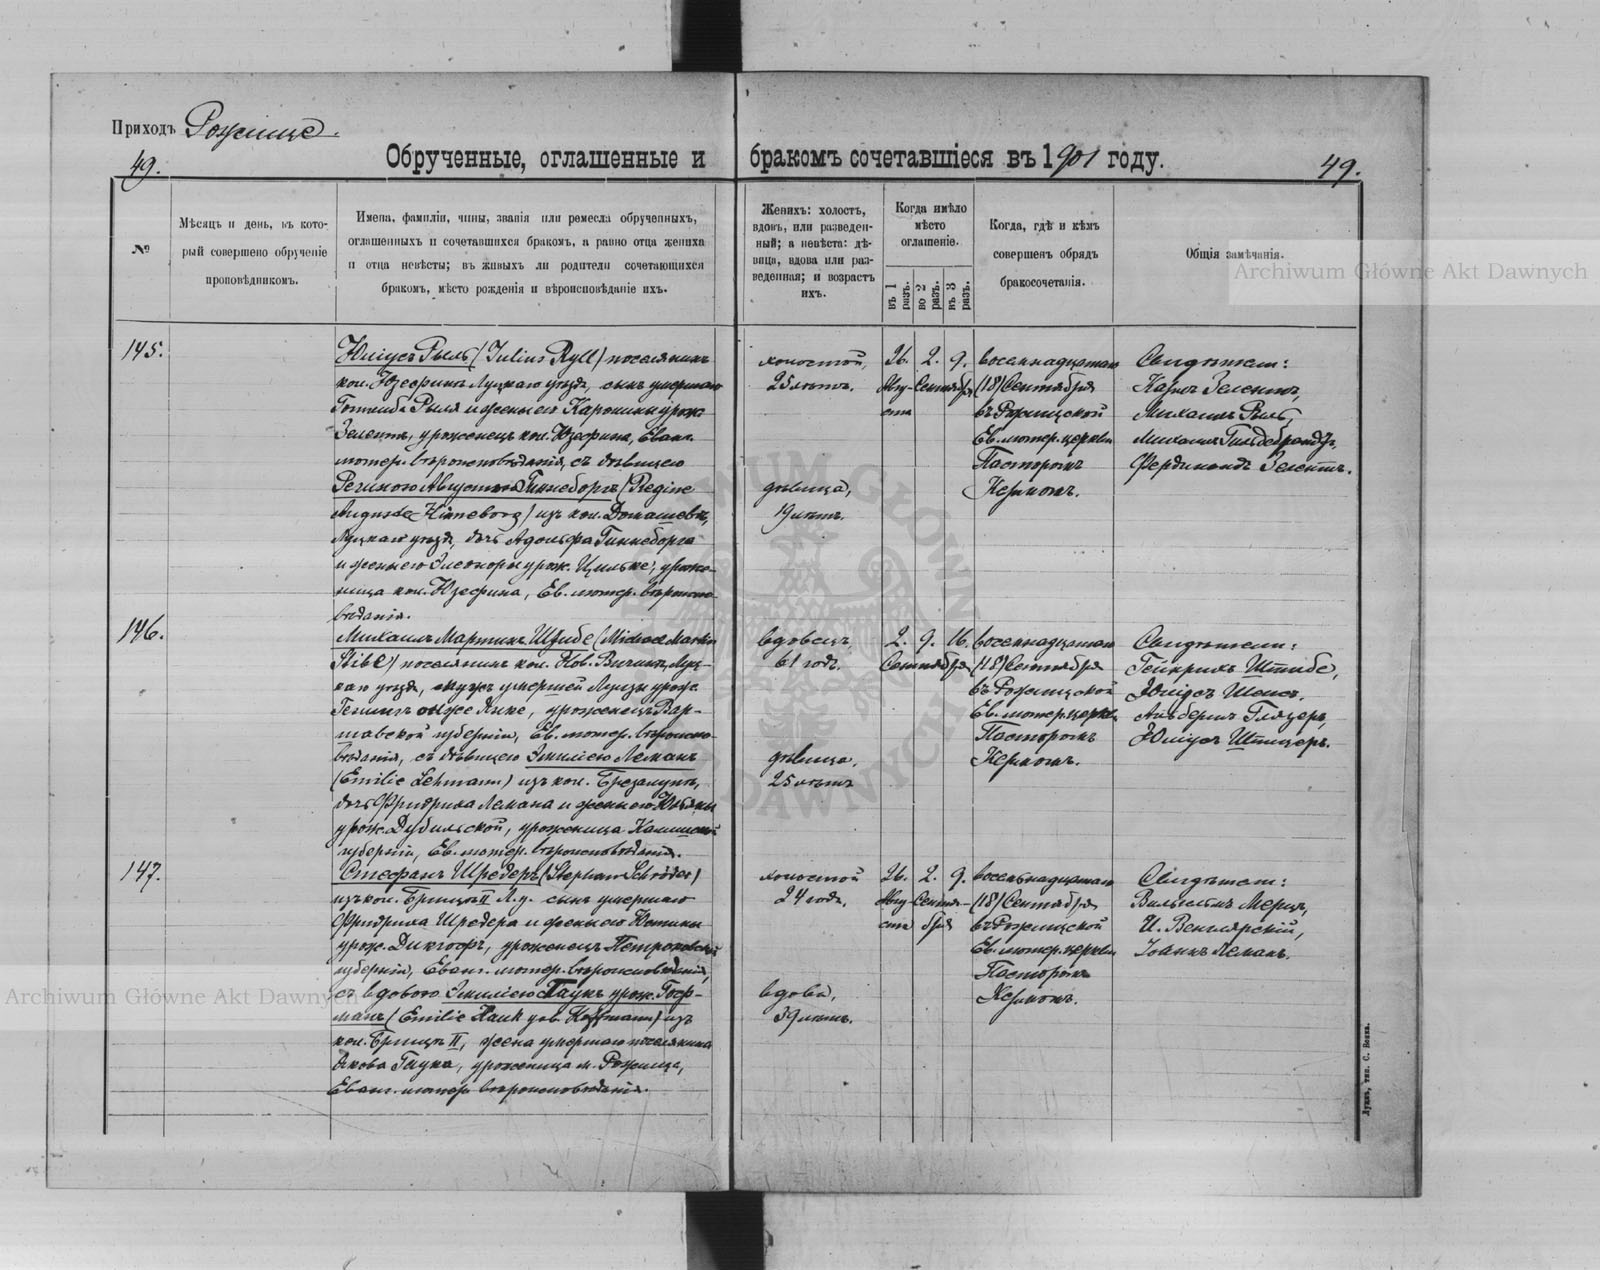 Приходъ Рожище.
49.
Обрученные, оглашенные и бракомъ сочетавшіеся въ 1901 году.
49.
№
Мѣсяцъ и день, въ кото-
рый совершено обрученіе
проповѣдникомъ.
Имена, фамиліи, чины, званія или ремесла обрученныхъ,
оглашенныхъ и сочетавшихся бракомъ, а равно отца жениха
и отца невѣсты; въ живыхъ ли родители сочетающихся
бракомъ, мѣсто рожденія и вѣроисповѣданіе ихъ.
Женихъ: холостъ,
вдовъ, или разведен-
ный; а невѣста: дѣ-
вица, вдова или раз-
веденная; и возрастъ
ихъ.
Когда имѣло
мѣсто
оглашеніе.
въ 1 разъ.
во 2 разъ.
въ 3 разъ.
Когда, гдѣ и кѣмъ
совершенъ обрядъ
бракосочетанія.
Общія замѣчанія.
Archiwum Główne Akt Dawnych
145.
Юліусъ Рыль (Julius Ryll) поселянинъ
кол. Юзефинъ Луцкаго уѣзда, сынъ умершаго
Готлиба Рыля и жены его Каролины урож.
Зелентъ, уроженецъ кол. Юзефина, Еванг.
лютер. вѣроисповѣданія, съ дѣвицею
Региною Августою Гиннеборгъ (Regine
Auguste Hinneborg) изъ кол. Домашевъ,
Луцкаго уѣзда, дочь Адольфа Гиннеборга
и жены его Элеоноры урож. Цильке, уроже-
ница кол. Юзефина, Ев. лютер. вѣроиспо-
вѣданія.
холостой,
25 лѣтъ.
дѣвица,
19 лѣтъ.
26. 2. 9.
Авгу- Сентября
ста
восемнадцатаго
(18) Сентября
въ Рожищской
Ев. лютер. церкви
Пасторомъ
Керномъ.
Свидѣтели:
Карлъ Зелентъ,
Михаилъ Рыль,
Михаилъ Гильдебрандъ,
Фердинандъ Зелентъ.
146.
Михаилъ Мартинъ Штибе (Michael Martin
Stibe) поселянинъ кол. Нов. Вичинъ, Луц-
каго уѣзда, мужъ умершей Луизы урож.
уроженецъ Вар-
шавской губерніи, Ев. лютер. вѣроиспо-
вѣданія, съ дѣвицею Эмиліею Леманъ
(Emilie Lehmann) изъ кол. Березолупъ,
дочь Фридриха Лемана и жены его Юліаны
урож. Дубильской, уроженица Калишской
губерніи, Ев. лютер. вѣроисповѣданія.
вдовецъ,
61 годъ.
дѣвица,
25 лѣтъ
2. 9. 16.
Сентября
восемнадцатаго
(18) Сентября
въ Рожищской
Ев. лютер. церкви
Пасторомъ
Керномъ.
Свидѣтели:
Гейнрихъ Штибе,
Юліусъ Шенсъ,
Альбертъ Глязеръ,
Юліусъ Штицеръ.
147.
Стефанъ Шредеръ (Stephan Schröder)
изъ кол. Брищъ II Л. у. сынъ умершаго
Фридриха Шредера и жены его Юстины
урож. Дикгофъ, уроженецъ Петроковской
губерніи, Еванг. лютер. вѣроисповѣданія,
съ вдовою Эмиліею Гаукъ урож. Гоф-
манъ (Emilie Hauk geb. Hoffmann) изъ
кол. Брищъ II, жена умершаго поселянина
Якова Гаука, уроженица м. Рожище,
Еванг. лютер. вѣроисповѣданія.
холостой
24 года,
вдова,
39 лѣтъ.
26. 2. 9.
Авгу- Сентя-
ста бря
восемьнадцатаго
(18) Сентября
въ Рожищской
Ев. лютер. церкви
Пасторомъ
Керномъ.
Свидѣтели:
Вильгельмъ Мерцъ,
И. Венглярскій,
Іоганъ Леманъ.
Archiwum Główne Akt Dawnych
Луцкъ, тип. С. Бокка.